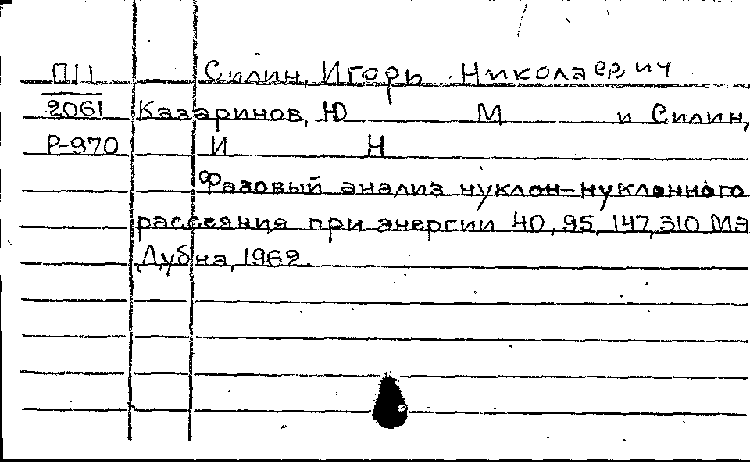 П11 Силин, Игорь Николаевич
2061 Казаринов, Ю М и Силин,
Р-970 И Н
Фазовый анализ нуклон-нуклонного
рассеяния при энергии 40, 95, 147, 310 Мэ
Дубна, 1962.